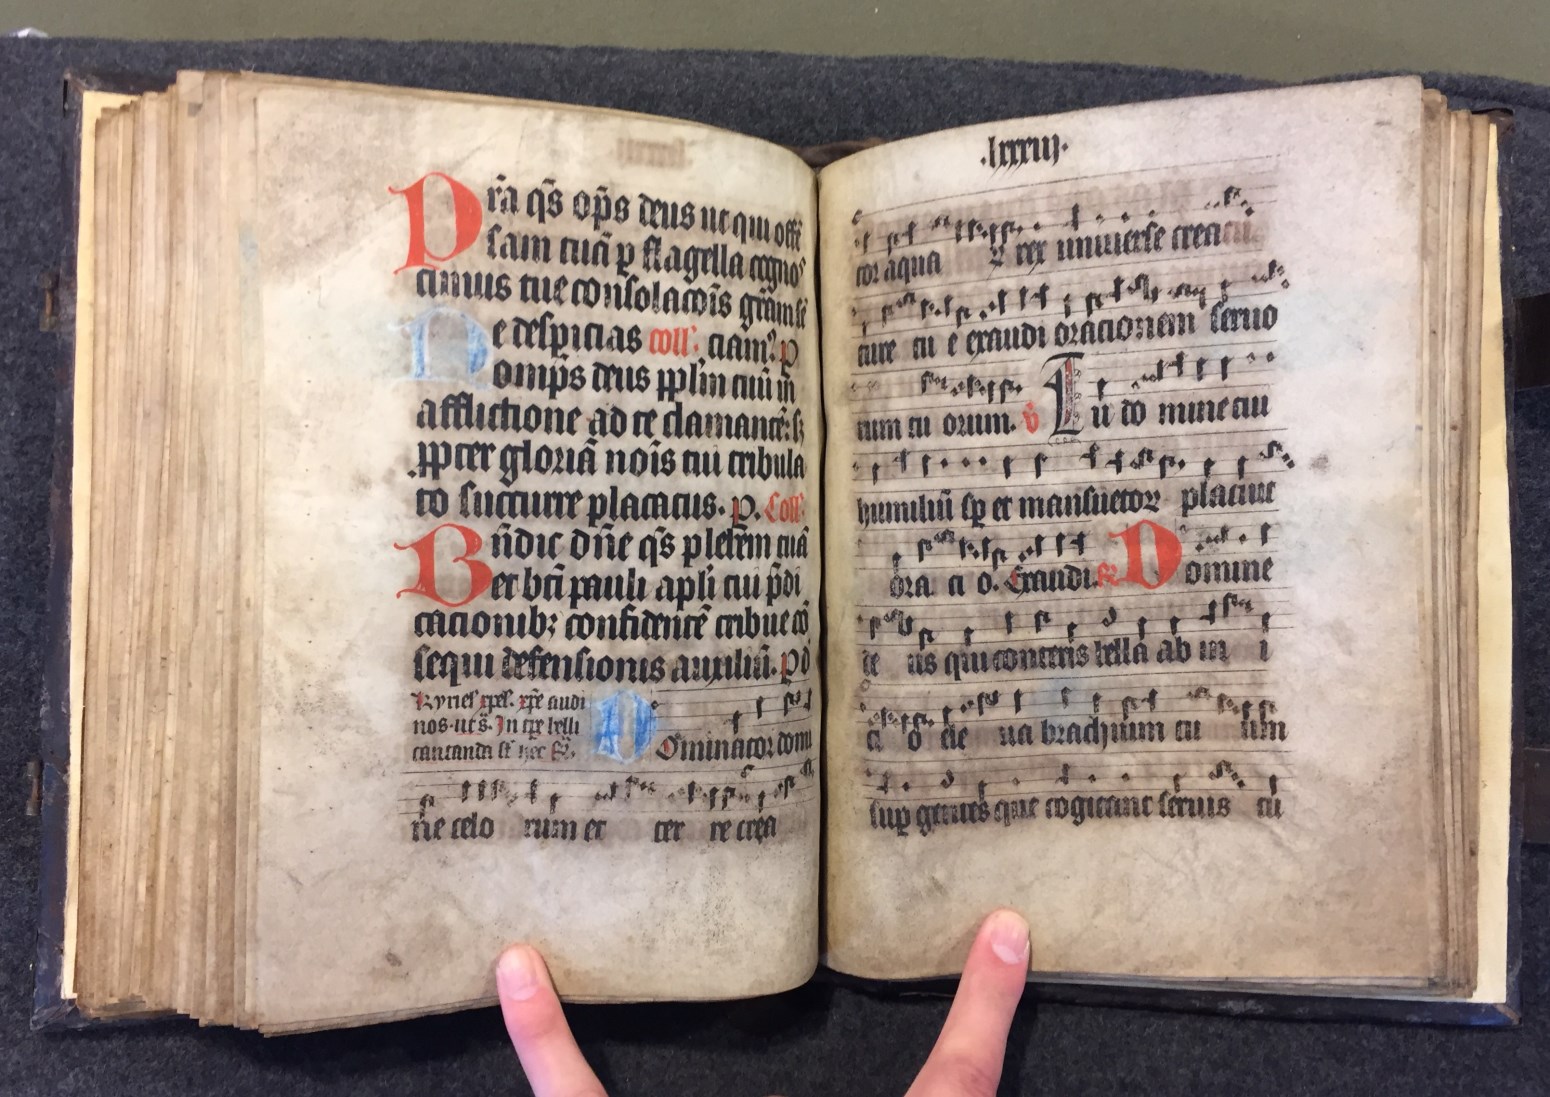 Pr̄a q̄s op̄s deus ut qui offē
sam tuā ꝑ flagella cogno
cimus tue consolacōis grām sē
Ne despicias coll: ciam?. p
omp̄s deus ppl̄m tuū in
afflictione ad te clamantē: sꝫ
ꝓpter gloriā nōis tui tribula
to succurre placatus. p. Coll:
Bn̄dic dn̄e q̄s plebem tuā
et bt̄i pauli apl̄i tui p̄di
cacionibꝫ confidentē tribue cō
sequi defensionis auxiliū. Pd
Kyriel xpel. xp̄e audi
nos. ut s̄. In
cantanda
Dominator domi
ne celo rum et ter re crea
.lxxxiij.
tor aqua ꝝ rex universe creatu
ture tu e exaudi oracionem servo
rum tu orum. v̄ Tu do mine cui
humiliū sꝑ et mansuetoꝝ placuit
dēra ci o. Exaudi. R̄ Domine
de us qui conteris bella ab in i
ci o de ua brachium tu um
suꝑ gentes que cogitant servis tu